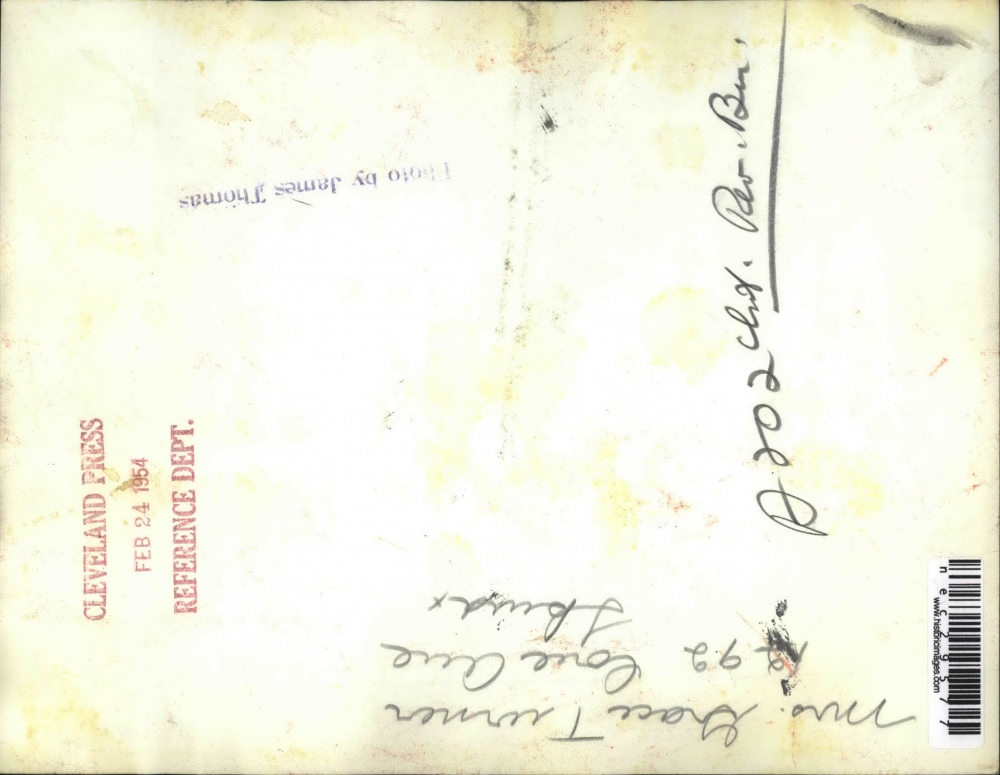 Photo by James Thomas
CLEVELAND PRESS
FEB 24 1954
REFERENCE DEPT.
Mrs. Grace Turner
1292 Cove Ave
A 202
necz29577
www.historicimages.com